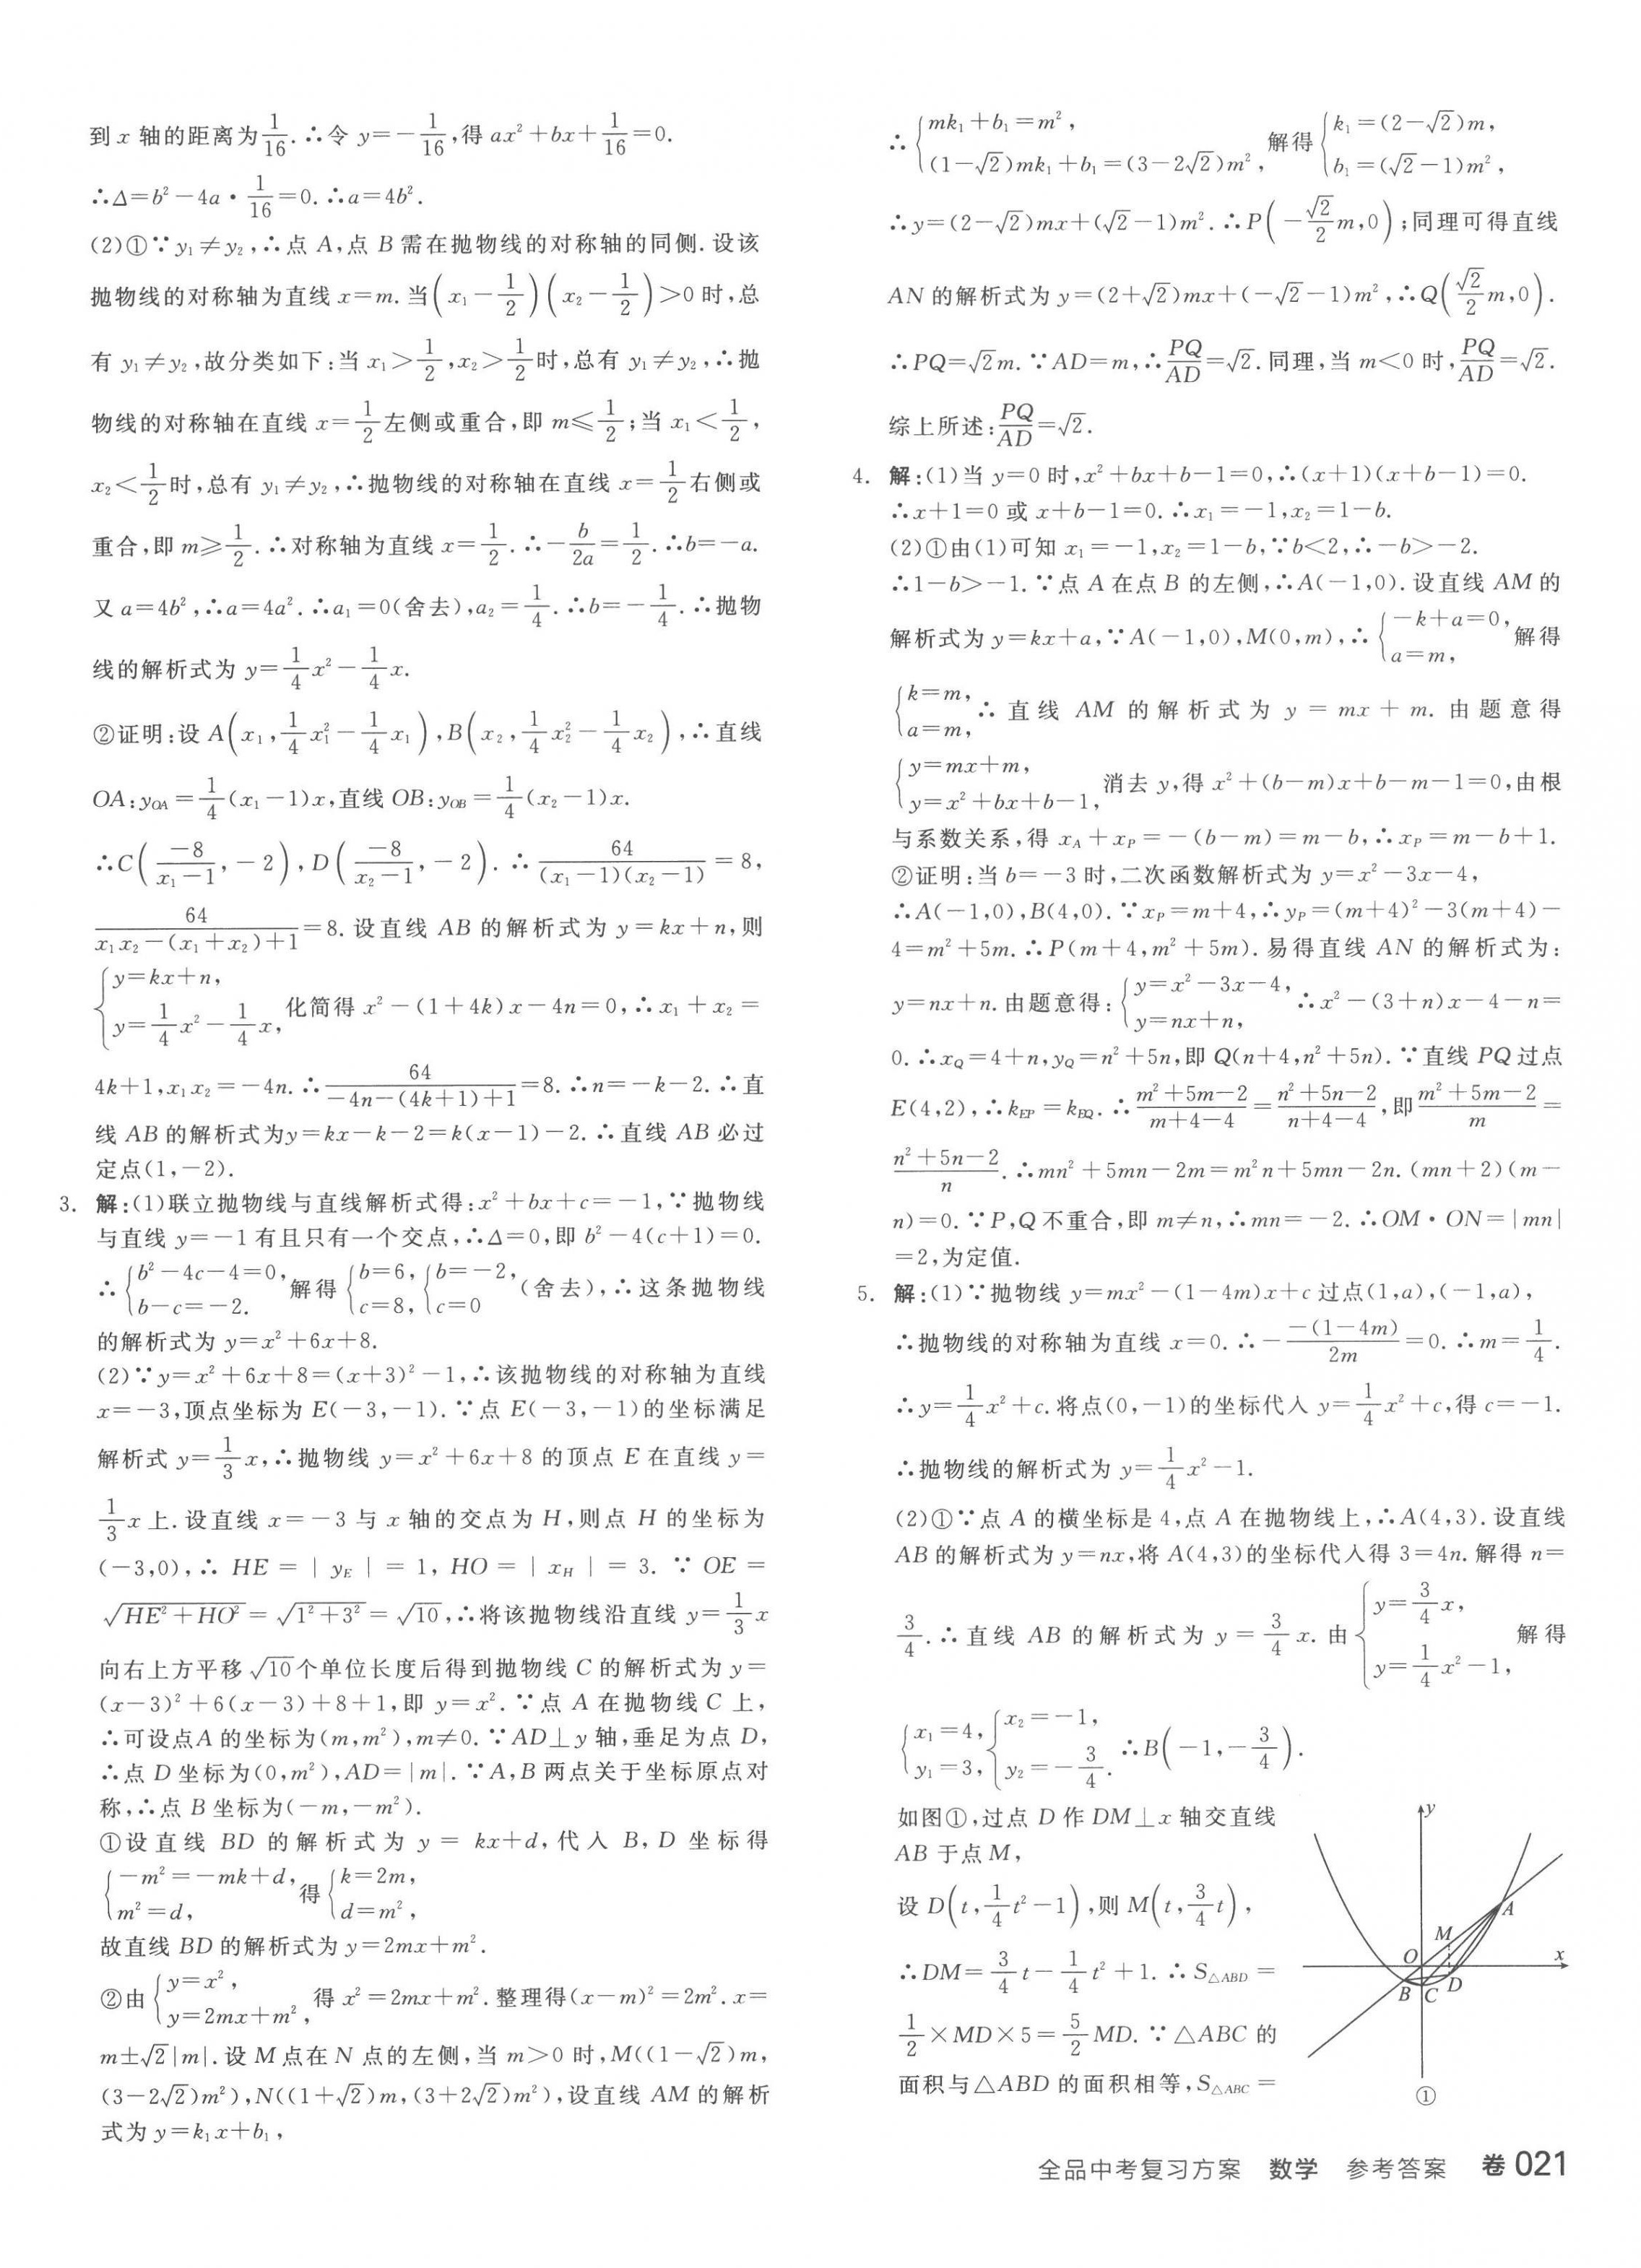 到 x 轴的距离为1/16.∴令 y=−1/16,得 ax²+bx+1/16=0.
∴Δ=b²−4a·1/16=0.∴a=4b².
(2)①∵y₁≠y₂,∴点 A,点 B 需在抛物线的对称轴的同侧.设该
抛物线的对称轴为直线 x=m.当(x₁−1/2)(x₂−1/2)>0 时,总
有 y₁≠y₂,故分类如下:当 x₁>1/2,x₂>1/2时,总有 y₁≠y₂,∴抛
物线的对称轴在直线 x=1/2左侧或重合,即 m≤1/2;当 x₁<1/2,
x₂<1/2时,总有 y₁≠y₂,∴抛物线的对称轴在直线 x=1/2右侧或
重合,即 m≥1/2.∴对称轴为直线 x=1/2.∴−b/2a=1/2.∴b=−a.
又 a=4b²,∴a=4a².∴a₁=0(舍去),a₂=1/4.∴b=−1/4.∴抛物
线的解析式为 y=1/4x²−1/4x.
②证明:设 A(x₁,1/4x₁²−1/4x₁),B(x₂,1/4x₂²−1/4x₂),∴直线
OA:y_OA=1/4(x₁−1)x,直线 OB:y_OB=1/4(x₂−1)x.
∴C(−8/(x₁−1),−2),D(−8/(x₂−1),−2).∴64/((x₁−1)(x₂−1))=8,
64/(x₁x₂−(x₁+x₂)+1)=8.设直线 AB 的解析式为 y=kx+n,则
{y=kx+n, y=1/4x²−1/4x, 化简得 x²−(1+4k)x−4n=0,∴x₁+x₂=
4k+1,x₁x₂=−4n.∴64/(−4n−(4k+1)+1)=8.∴n=−k−2.∴直
线 AB 的解析式为y=kx−k−2=k(x−1)−2.∴直线 AB 必过
定点(1,−2).
3. 解:(1)联立抛物线与直线解析式得:x²+bx+c=−1,∵抛物线
与直线 y=−1 有且只有一个交点,∴Δ=0,即 b²−4(c+1)=0.
∴{b²−4c−4=0, b−c=−2. 解得{b=6, c=8, {b=−2, c=0 (舍去),∴这条抛物线
的解析式为 y=x²+6x+8.
(2)∵y=x²+6x+8=(x+3)²−1,∴该抛物线的对称轴为直线
x=−3,顶点坐标为 E(−3,−1).∵点 E(−3,−1)的坐标满足
解析式 y=1/3x,∴抛物线 y=x²+6x+8 的顶点 E 在直线 y=
1/3x 上.设直线 x=−3 与 x 轴的交点为 H,则点 H 的坐标为
(−3,0),∴HE=|y_E|=1,HO=|x_H|=3.∵OE=
√(HE²+HO²)=√(1²+3²)=√10,∴将该抛物线沿直线 y=1/3x
向右上方平移√10个单位长度后得到抛物线 C 的解析式为 y=
(x−3)²+6(x−3)+8+1,即 y=x².∵点 A 在抛物线 C 上,
∴可设点A 的坐标为(m,m²),m≠0.∵AD⊥y 轴,垂足为点 D,
∴点 D 坐标为(0,m²),AD=|m|.∵A,B 两点关于坐标原点对
称,∴点 B 坐标为(−m,−m²).
①设直线 BD 的解析式为 y=kx+d,代入 B,D 坐标得
{−m²=−mk+d, m²=d, 得{k=2m, d=m²,
故直线 BD 的解析式为 y=2mx+m².
②由{y=x², y=2mx+m², 得 x²=2mx+m².整理得(x−m)²=2m².x=
m±√2|m|.设 M 点在 N 点的左侧,当 m>0 时,M((1−√2)m,
(3−2√2)m²),N((1+√2)m,(3+2√2)m²),设直线 AM 的解析
式为 y=k₁x+b₁,
∴{mk₁+b₁=m², (1−√2)mk₁+b₁=(3−2√2)m², 解得{k₁=(2−√2)m, b₁=(√2−1)m²,
∴y=(2−√2)mx+(√2−1)m².∴P(−√2/2m,0);同理可得直线
AN 的解析式为 y=(2+√2)mx+(−√2−1)m²,∴Q(√2/2m,0).
∴PQ=√2m.∵AD=m,∴PQ/AD=√2.同理,当 m<0 时,PQ/AD=√2.
综上所述:PQ/AD=√2.
4. 解:(1)当 y=0 时,x²+bx+b−1=0,∴(x+1)(x+b−1)=0.
∴x+1=0 或 x+b−1=0.∴x₁=−1,x₂=1−b.
(2)①由(1)可知 x₁=−1,x₂=1−b,∵b<2,∴−b>−2.
∴1−b>−1.∵点 A 在点 B 的左侧,∴A(−1,0).设直线 AM 的
解析式为 y=kx+a,∵A(−1,0),M(0,m),∴{−k+a=0, a=m, 解得
{k=m, a=m, ∴直线 AM 的解析式为 y=mx+m.由题意得
{y=mx+m, y=x²+bx+b−1, 消去 y,得 x²+(b−m)x+b−m−1=0,由根
与系数关系,得 x_A+x_P=−(b−m)=m−b,∴x_P=m−b+1.
②证明:当 b=−3 时,二次函数解析式为 y=x²−3x−4,
∴A(−1,0),B(4,0).∵x_P=m+4,∴y_P=(m+4)²−3(m+4)−
4=m²+5m.∴P(m+4,m²+5m).易得直线 AN 的解析式为:
y=nx+n.由题意得:{y=x²−3x−4, y=nx+n, ∴x²−(3+n)x−4−n=
0.∴x_Q=4+n,y_Q=n²+5n,即 Q(n+4,n²+5n).∵直线 PQ 过点
E(4,2),∴k_EP=k_EQ.∴(m²+5m−2)/(m+4−4)=(n²+5n−2)/(n+4−4),即(m²+5m−2)/m=
(n²+5n−2)/n.∴mn²+5mn−2m=m²n+5mn−2n.(mn+2)(m−
n)=0.∵P,Q 不重合,即 m≠n,∴mn=−2.∴OM·ON=|mn|
=2,为定值.
5. 解:(1)∵抛物线 y=mx²−(1−4m)x+c 过点(1,a),(−1,a),
∴抛物线的对称轴为直线 x=0.∴−(−(1−4m))/2m=0.∴m=1/4.
∴y=1/4x²+c.将点(0,−1)的坐标代入 y=1/4x²+c,得 c=−1.
∴抛物线的解析式为 y=1/4x²−1.
(2)①∵点 A 的横坐标是 4,点 A 在抛物线上,∴A(4,3).设直线
AB 的解析式为 y=nx,将 A(4,3)的坐标代入得 3=4n.解得 n=
3/4.∴直线 AB 的解析式为 y=3/4x.由{y=3/4x, y=1/4x²−1, 解得
{x₁=4, y₁=3, {x₂=−1, y₂=−3/4. ∴B(−1,−3/4).
如图①,过点 D 作 DM⊥x 轴交直线
AB 于点 M,
设 D(t,1/4t²−1),则 M(t,3/4t),
∴DM=3/4t−1/4t²+1.∴S△ABD=
1/2×MD×5=5/2MD.∵△ABC 的
面积与△ABD 的面积相等,S△ABC=
y
A
M
O
x
B C D
①
全品中考复习方案 数学 参考答案 卷 021